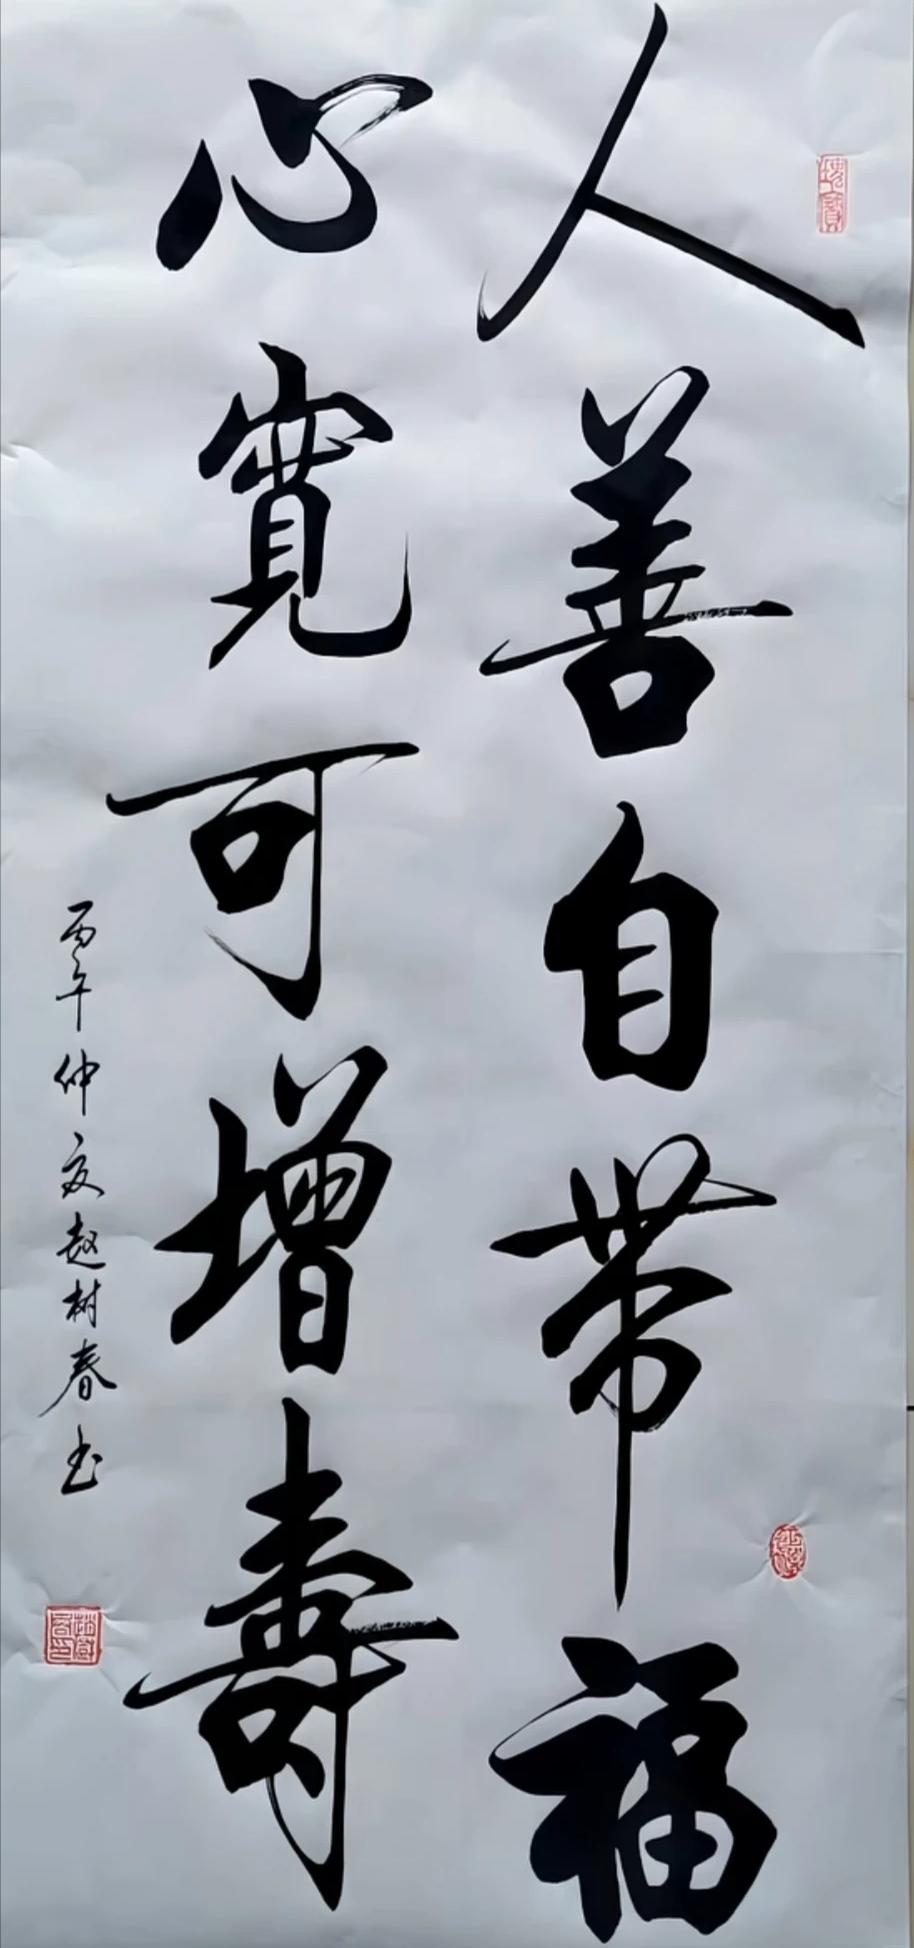 人善自带福
心寬可增壽
丙午仲夏赵树春书